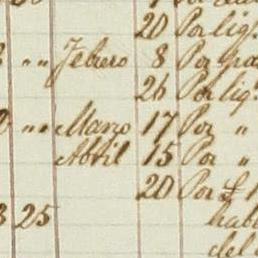 20 Por liq.
" " Febrero 8 Por
26 Por liq.
" " Marzo 17 Por "
Abril 15 Por "
20 Por £
3 25
del